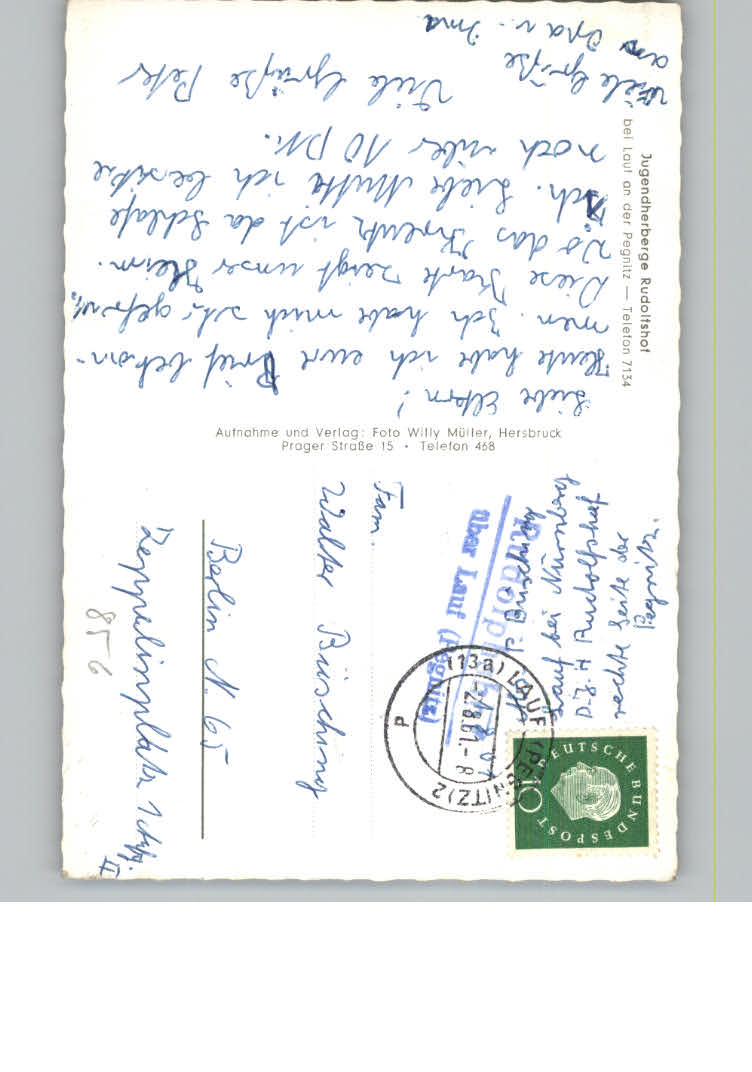 Jugendherberge Rudolfshof
bei Lauf an der Pegnitz — Telefon 7134
Liebe Eltern!
Heute habe ich eure Brief bekom-
men. Ich habe mich sehr gefreut.
Diese Karte zeigt unser Heim.
Wo das Kreutz ist da schlafe
ich. Liebe Mutti ich besitze
noch über 10 DM.
Viele Grüße Peter
Viele Grüße
an Opa u. Oma
Aufnahme und Verlag: Foto Willy Müller, Hersbruck
Prager Straße 15 • Telefon 468
Rudolphshof
über Lauf (Pegnitz)
Büsching
Lauf bei Nürnberg
D.J.H Rudolfshof
rechte Seite der
Pegnitz.
(13a) LAUF (PEGNITZ) 2
-2.8.61.-8
P
DEUTSCHE BUNDESPOST
10
Fam.
Walter Büsching
Berlin N. 65
Zeppelinplatz 1
II
856